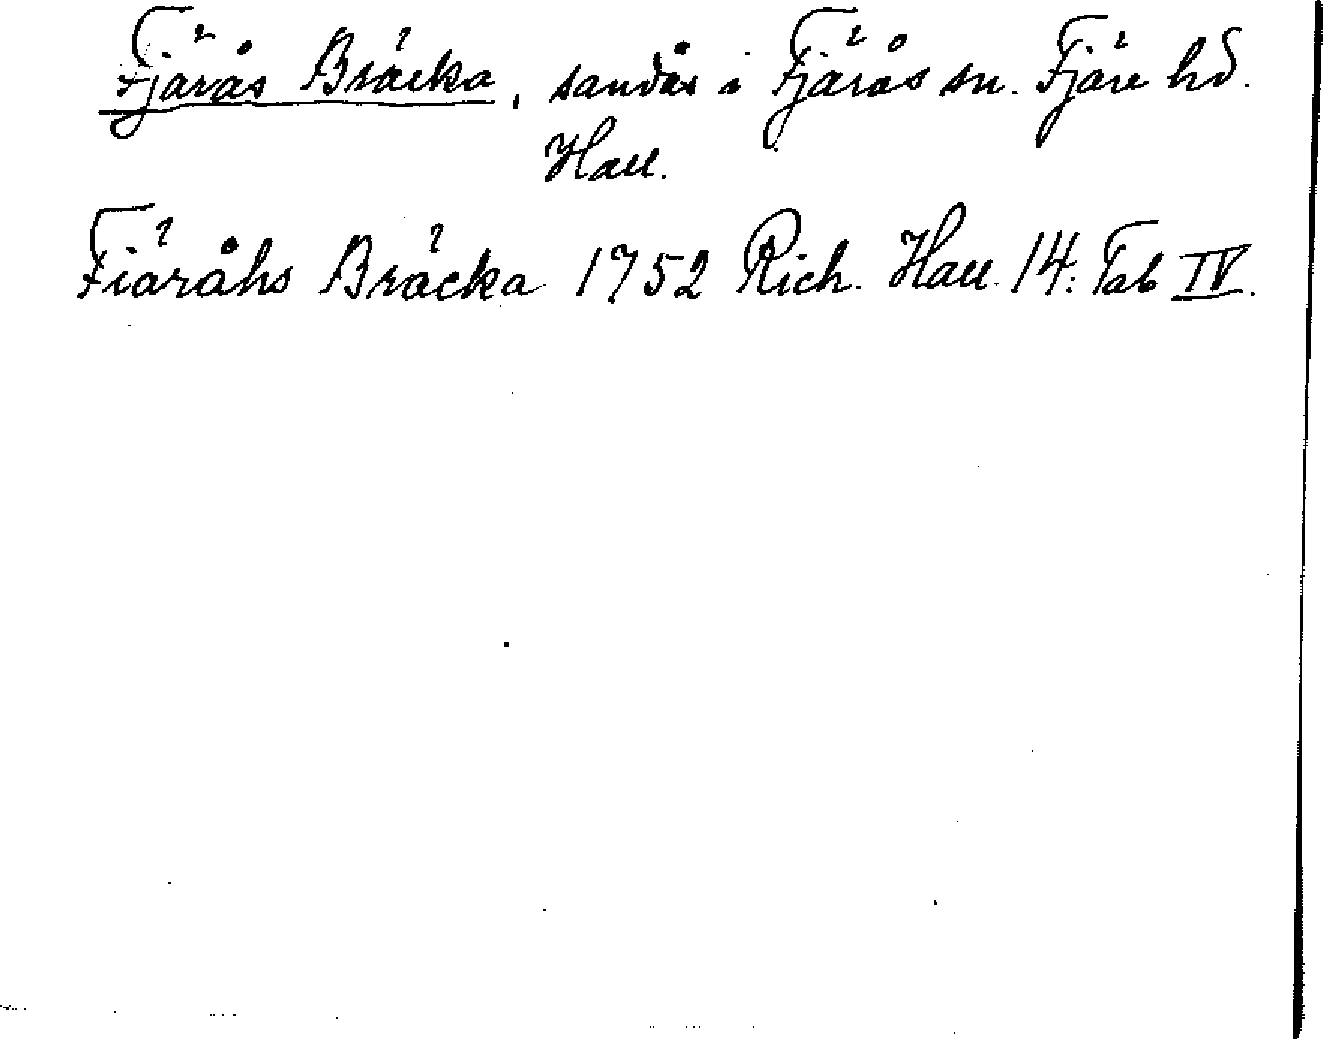 Fjärås Bräcka, sandås i Fjärås sn. Fjäre hd.
Hall.
Fiäråhs Bräcka 1752 Rich. Hall. 14: Tab IV.